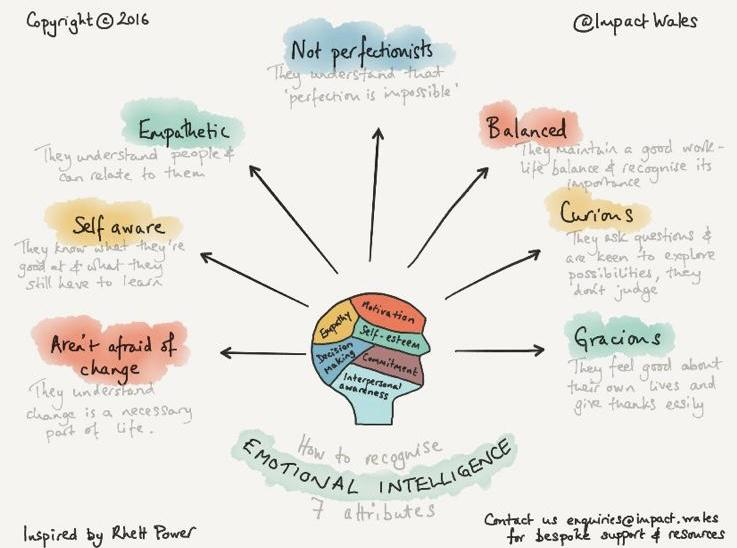 Copyright © 2016
@Impact Wales
Not perfectionists
They understand that
'perfection is impossible'
Empathetic
They understand people &
can relate to them
Balanced
They maintain a good work-
life balance & recognise its
importance
Self aware
They know what they're
good at & what they
still have to learn
Curious
They ask questions &
are keen to explore
possibilities, they
don't judge
Aren't afraid of
change
They understand
change is a necessary
part of life.
Gracious
They feel good about
their own lives and
give thanks easily
Empathy
Motivation
Self-esteem
Decision
Making
Commitment
Interpersonal
awareness
How to recognise
EMOTIONAL INTELLIGENCE
7 attributes
Inspired by Rhett Power
Contact us enquiries@impact.wales
for bespoke support & resources